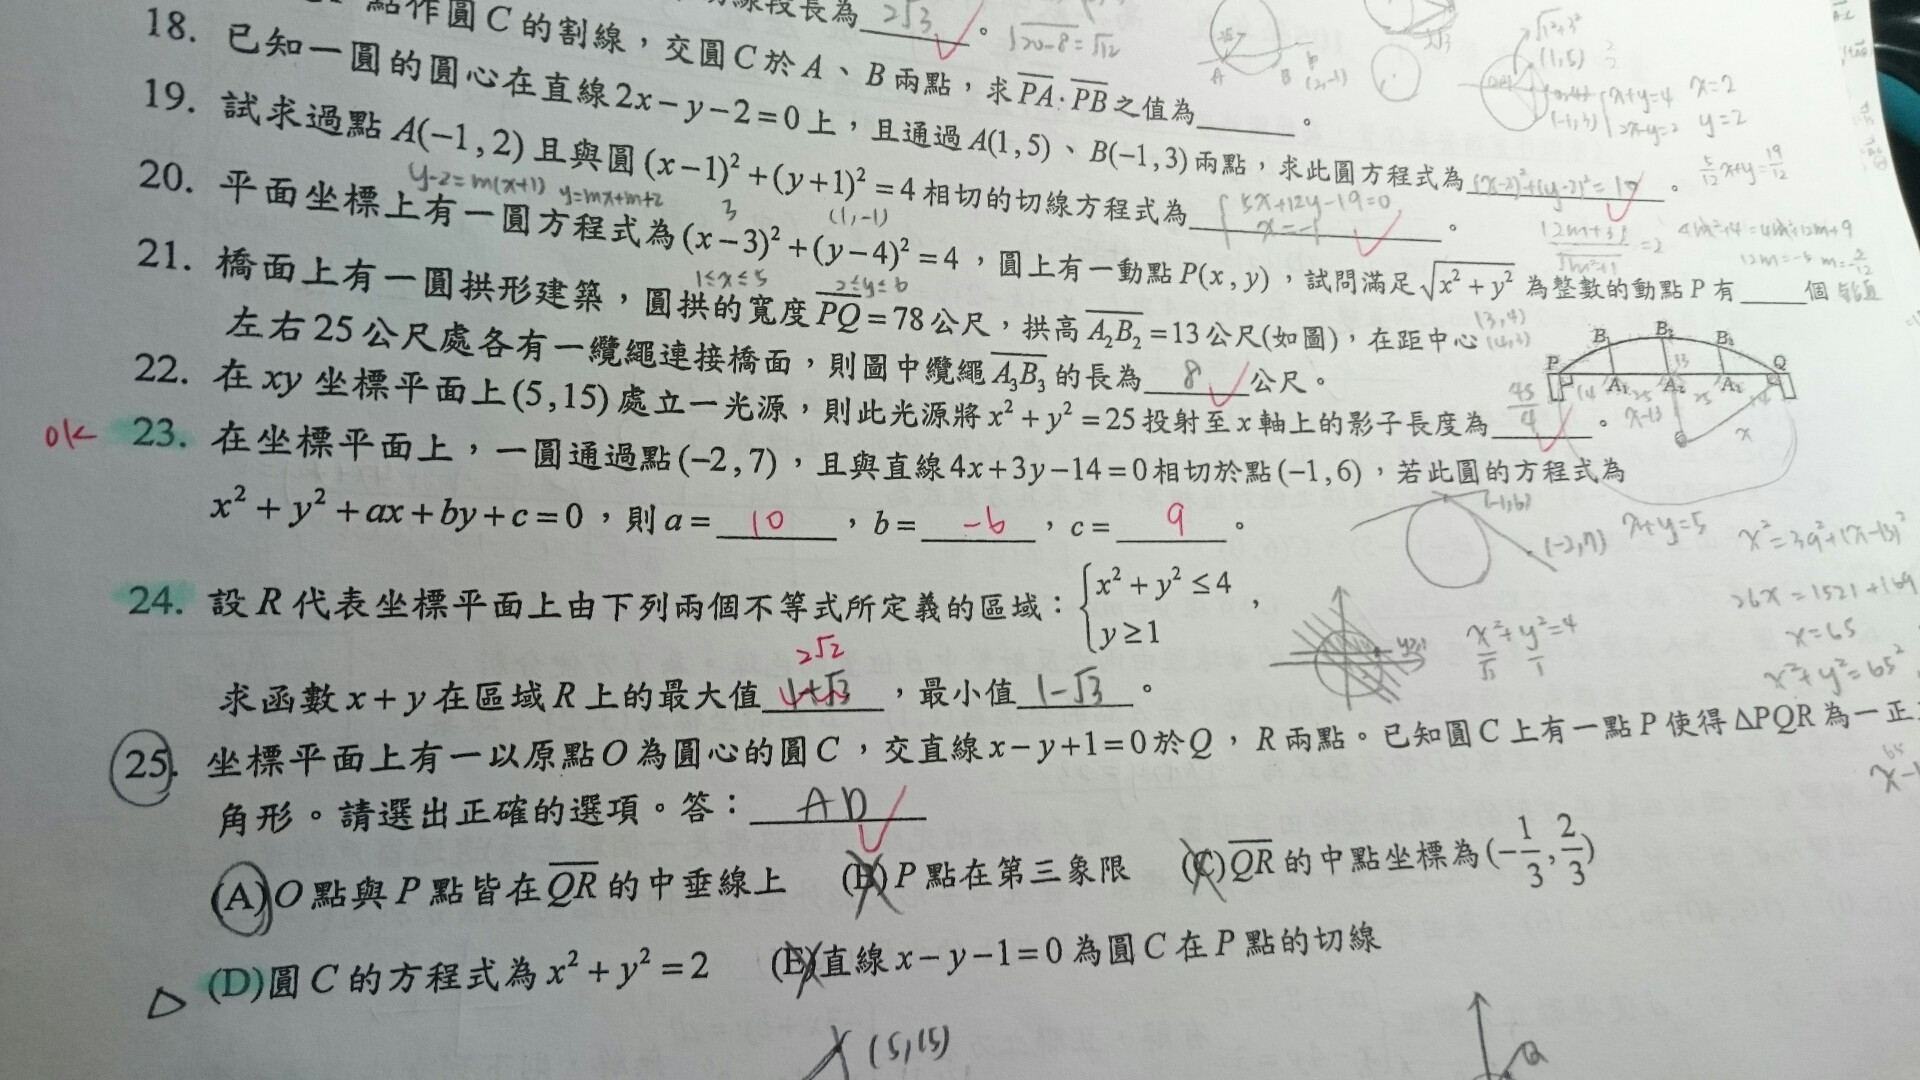 點作圓C的割線,交圓C於A、B兩點,求PA·PB之值為______。
線段長為 2√3 。
√20-8=√12
18. 已知一圓的圓心在直線2x-y-2=0上,且通過A(1,5)、B(-1,3)兩點,求此圓方程式為 (x-2)²+(y-2)²=10 。
19. 試求過點A(-1,2)且與圓(x-1)²+(y+1)²=4相切的切線方程式為 { 5x+12y-19=0 x=-1 。
y-2=m(x+1) y=mx+m+2
(1,-1)
20. 平面坐標上有一圓方程式為(x-3)²+(y-4)²=4,圓上有一動點P(x,y),試問滿足√x²+y² 為整數的動點P有____個
1≤x≤5 2≤y≤6
21. 橋面上有一圓拱形建築,圓拱的寬度PQ=78公尺,拱高A₂B₂=13公尺(如圖),在距中心
左右25公尺處各有一纜繩連接橋面,則圖中纜繩A₃B₃的長為 8 公尺。
22. 在xy坐標平面上(5,15)處立一光源,則此光源將x²+y²=25投射至x軸上的影子長度為 45/4 。
ok 23. 在坐標平面上,一圓通過點(-2,7),且與直線4x+3y-14=0相切於點(-1,6),若此圓的方程式為
x²+y²+ax+by+c=0,則a= 10 ,b= -6 ,c= 9 。
24. 設R代表坐標平面上由下列兩個不等式所定義的區域:{ x²+y²≤4 y≥1 ,
2√2
求函數x+y在區域R上的最大值 1+√3 ,最小值 1-√3 。
25. 坐標平面上有一以原點O為圓心的圓C,交直線x-y+1=0於Q,R兩點。已知圓C上有一點P使得ΔPQR為一正
角形。請選出正確的選項。答: AD
(A)O點與P點皆在QR的中垂線上 (B)P點在第三象限 (C)QR的中點坐標為(-1/3,2/3)
(D)圓C的方程式為x²+y²=2 (E)直線x-y-1=0為圓C在P點的切線
(5,15)
A B
(1,5)
(-1,3)
x+y=4
2x-y=2
x=2
y=2
5/12x+y=19/12
(3,4)
P B₁ B₂ B₃ Q
A₁ A₂ A₃
13 25 25
x-13
x
(-1,6)
(-2,7)
x+y=5
x²=39²+(x-13)²
26x=1521+169
x=65
x²+y²=65²
x²+y²=4
√3 1
Q